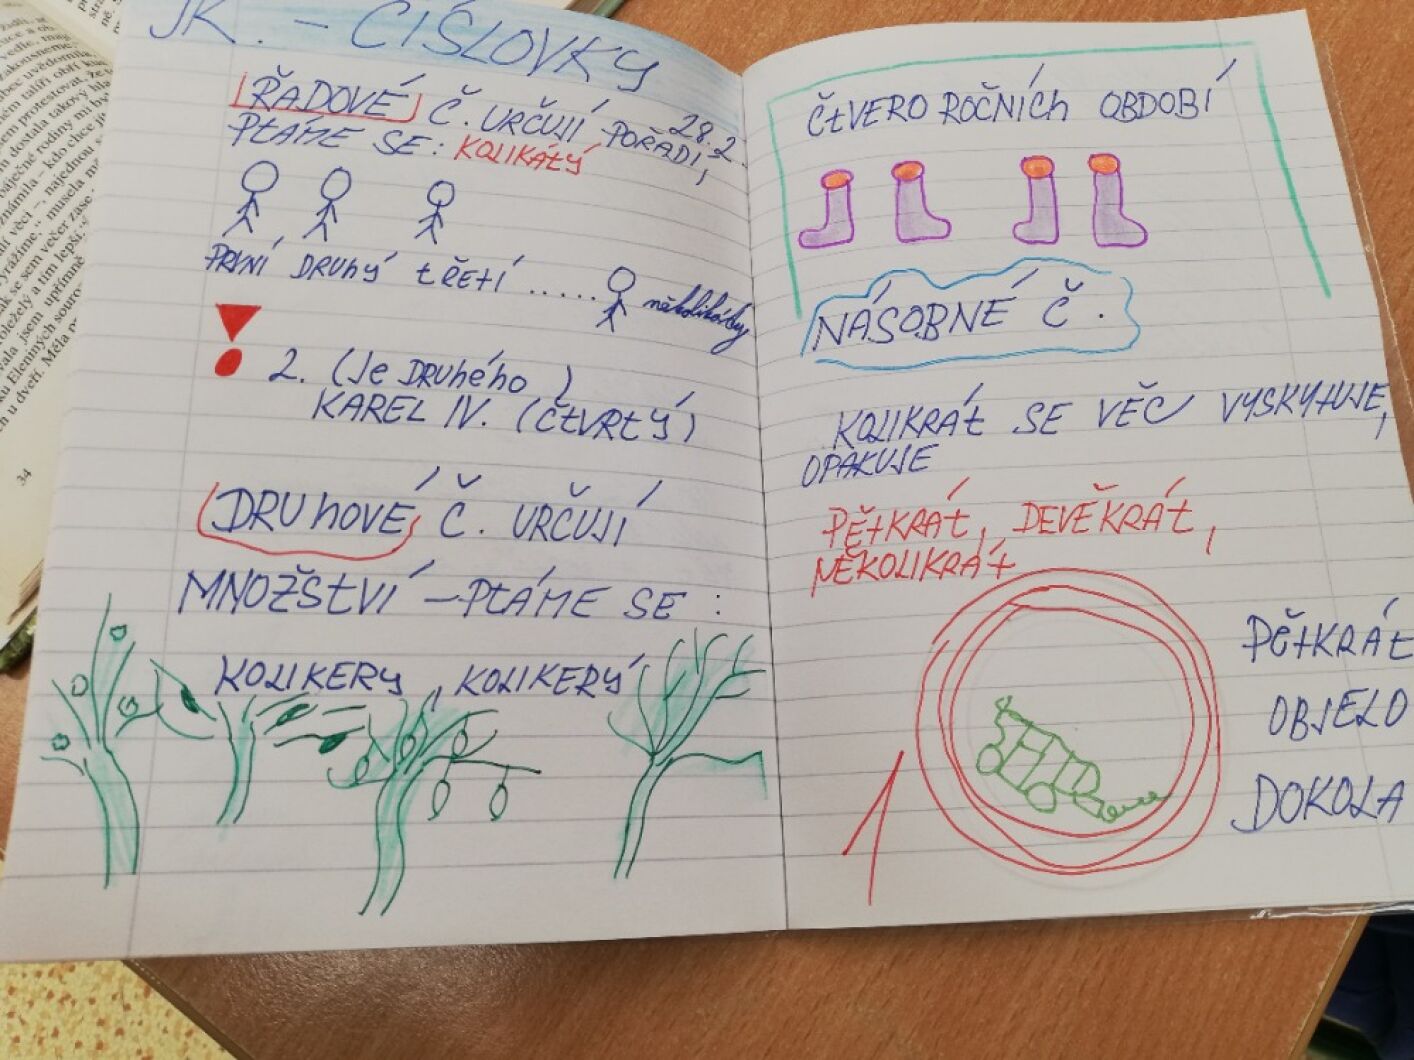 JK. - ČÍSLOVKY
ŘADOVÉ Č. URČUJÍ POŘADÍ,
28.2.
PTÁME SE: KOLIKÁTÝ
PRVNÍ DRUhÝ tŘEtÍ ...... několikátý
2. (Je DRUhého )
KAREL IV. (ČtVRtÝ)
DRUhOVÉ Č. URČUJÍ
MNOŽStVÍ - PtÁME SE :
KOLIKERY, KOLIKERÝ
ČtVERO ROČNÍCh OBDOBÍ
NÁSOBNÉ Č.
KOLIKRÁt SE VĚC VYSKYtUJE,
OPAKUJE
PĚtKRÁt, DEVĚKRÁt,
NĚKOLIKRÁt
PĚtKRÁt
OBJELO
DOKOLA
34